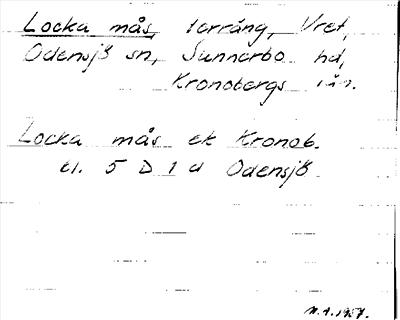 Locka mås, torräng, Vret,
Odensjö sn, Sunnerbo hd,
Kronobergs län.
Locka mås ek Kronob.
bl. 5 D 1 d Odensjö
N.A. 1957.